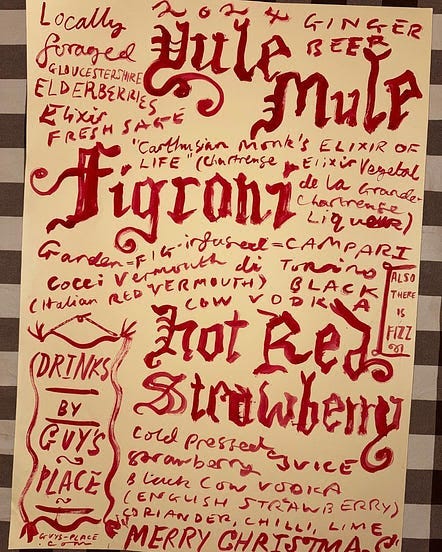 2024
Locally
foraged
GLOUCESTERSHIRE
ELDERBERRIES
Elixir
FRESH SAGE
Yule
Mule
GINGER
BEER
"Carthusian Monk's ELIXIR OF
LIFE" (Chartrense Elixir Vegetal
de la Grande
Chartrense
Liqueur)
Figroni
Garden=FIG-infused=CAMPARI
Cocci Vermouth di Torino
(Italian RED VERMOUTH) BLACK
COW VODKA
ALSO
THERE
IS
FIZZ
Hot Red
Strawberry
Cold Pressed
Strawberry JUICE
Black Cow VODKA
(ENGLISH STRAWBERRY)
CORIANDER, CHILLI, LIME
MERRY CHRISTMAS
DRINKS
BY
GUY'S
PLACE
GUYS-PLACE
.com